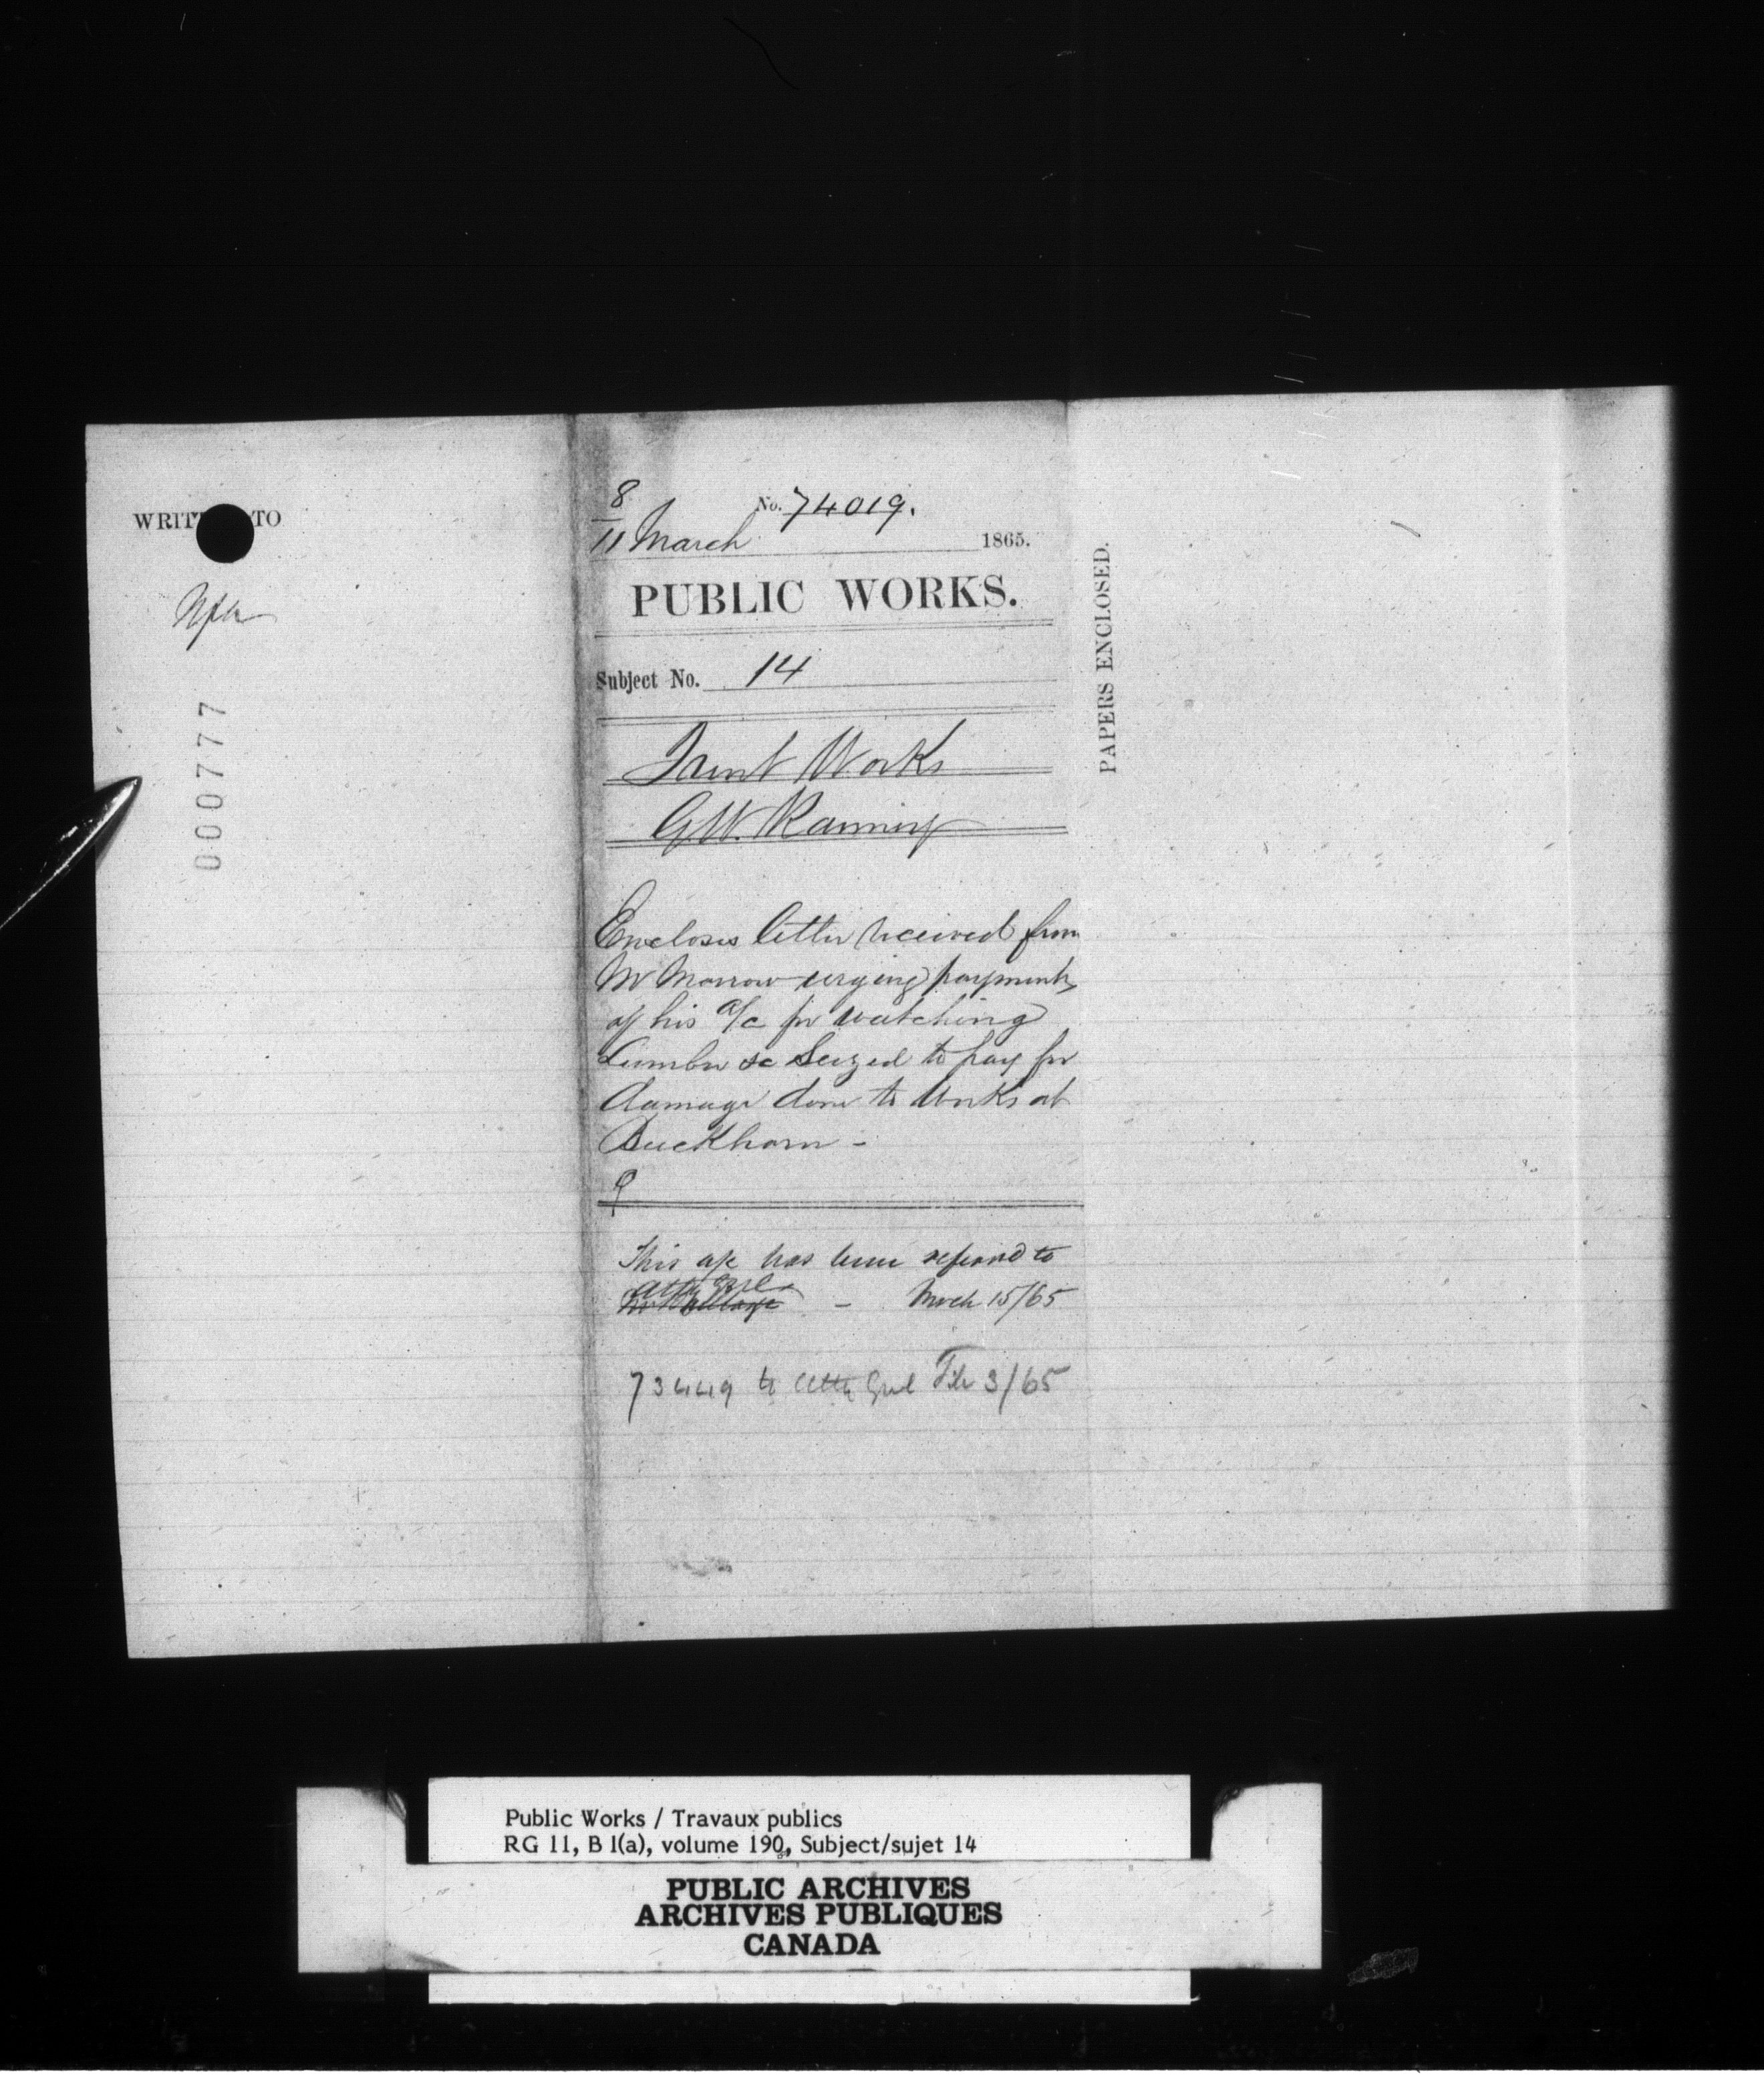 WRITTEN TO
000777
8
No. 74019.
11 March 1865.
PUBLIC WORKS.
Subject No. 14
Trent Works
G.W. Ranney
Encloses letter received from
Mr Morrow urging payment
of his a/c for watching
Lumber &c Seized to pay for
damage done to Works at
Buckhorn -
This a/c has been referred to
Atty Genl
- March 15/65
73449 to Atty Genl Feb 3/65
PAPERS ENCLOSED.
Public Works / Travaux publics
RG 11, B 1(a), volume 190, Subject/sujet 14
PUBLIC ARCHIVES
ARCHIVES PUBLIQUES
CANADA